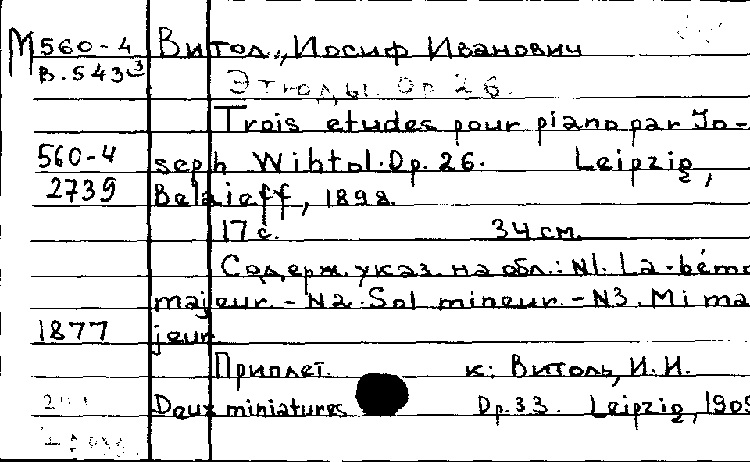 М 560-4 Витол, Иосиф Иванович
В.543³
Этюды. Ор 26.
Trois etudes pour piano par Jo-
560-4 seph Wihtol. Op. 26. Leipzig,
2739 Belaieff, 1898.
17 с. 34 см.
Содерж. указ. на обл.: N1. La-bémo
majeur. - N2. Sol mineur. - N3. Mi ma
1877 jeur.
Приплет. к: Витоль, И. И.
Deux miniatures Op. 33. Leipzig, 190